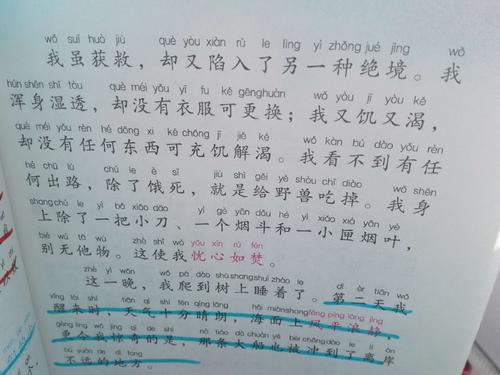 wǒ suī huò jiù què yòu xiàn rù le lìng yì zhǒng jué jìng wǒ
我虽获救，却又陷入了另一种绝境。我
hún shēn shī tòu què méi yǒu yī fu kě gēnghuàn wǒ yòu jī yòu kě
浑身湿透，却没有衣服可更换；我又饥又渴，
què méi yǒu rèn hé dōng xi kě chōng jī jiě kě wǒ kàn bú dào yǒu rèn
却没有任何东西可充饥解渴。我看不到有任
hé chū lù chú le è sǐ jiù shì gěi yě shòu chī diào wǒ shēn
何出路，除了饿死，就是给野兽吃掉。我身
shang chú le yì bǎ xiǎo dāo yí gè yān dǒu hé yì xiǎo xiá yān yè
上除了一把小刀、一个烟斗和一小匣烟叶，
bié wú tā wù zhè shǐ wǒ yōu xīn rú fén
别无他物。这使我忧心如焚。
zhè yì wǎn wǒ pá dào shù shang shuì zháo le dì èr tiān wǒ
这一晚，我爬到树上睡着了。第二天我
xǐng lái shí tiān qì shí fēn qíng lǎng hǎi miànshang fēng píng làng jìng
醒来时，天气十分晴朗，海面上风平浪静，
gèng lìng wǒ jīng qí de shì nà tiáo dà chuán yě bèi chōng dào le lí àn
更令我惊奇的是，那条大船也被冲到了离岸
bù yuǎn de dì fang
不远的地方。